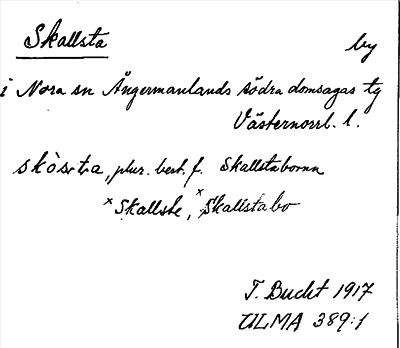 Skallsta by
i Nora sn Ångermanlands södra domsagas tg
Västernorrl. l.
skòsta, plur. best. f. Skallstaborna
ˣSkallste, ˣSkallstabo
T. Bucht 1917
ULMA 389:1